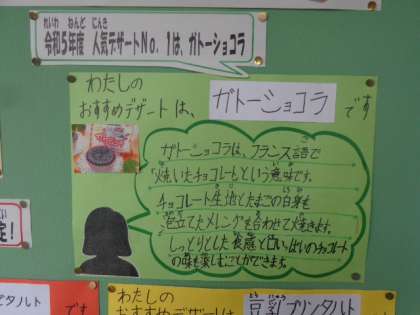 れいわ ねんど にんき
令和5年度 人気デザートNo. 1は、ガトーショコラ
わたしの
おすすめデザートは、ガトーショコラです
ガトーショコラは、フランス語で
焼いたチョコレートという意味です。
チョコレート生地とたまごの白身を
泡立てたメレンゲを合わせて焼きます。
しっとりとした食感と口いっぱいのチョコレート
の味を楽しむことができます。
定!
タルト です
わたしの
おすすめデザートは 豆乳プリンタルト